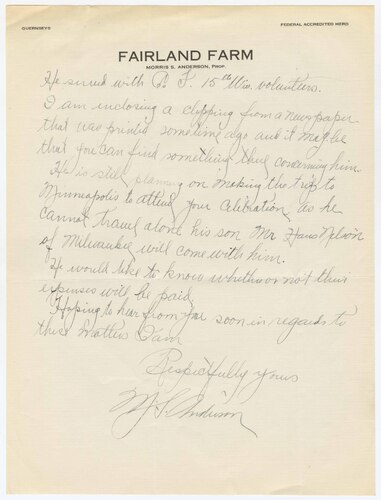 GUERNSEYS
FEDERAL ACCREDITED HERD
FAIRLAND FARM
MORRIS S. ANDERSON, PROP.
He served with Co. F. 15th Wis. volunteers.
I am inclosing a clipping from a newspaper
that was printed sometime ago and it may be
that you can find something thus concerning him.
He is still planning on making the trip to
Minneapolis to attend your celibration, as he
cannot travel alone his son Mr. Hans Nelson
of Milwaukee will come with him.
He would like to know whether or not thier
expenses will be paid.
Hoping to hear from you soon in regards to
these matters I am
Respectfully yours
M. S. Anderson